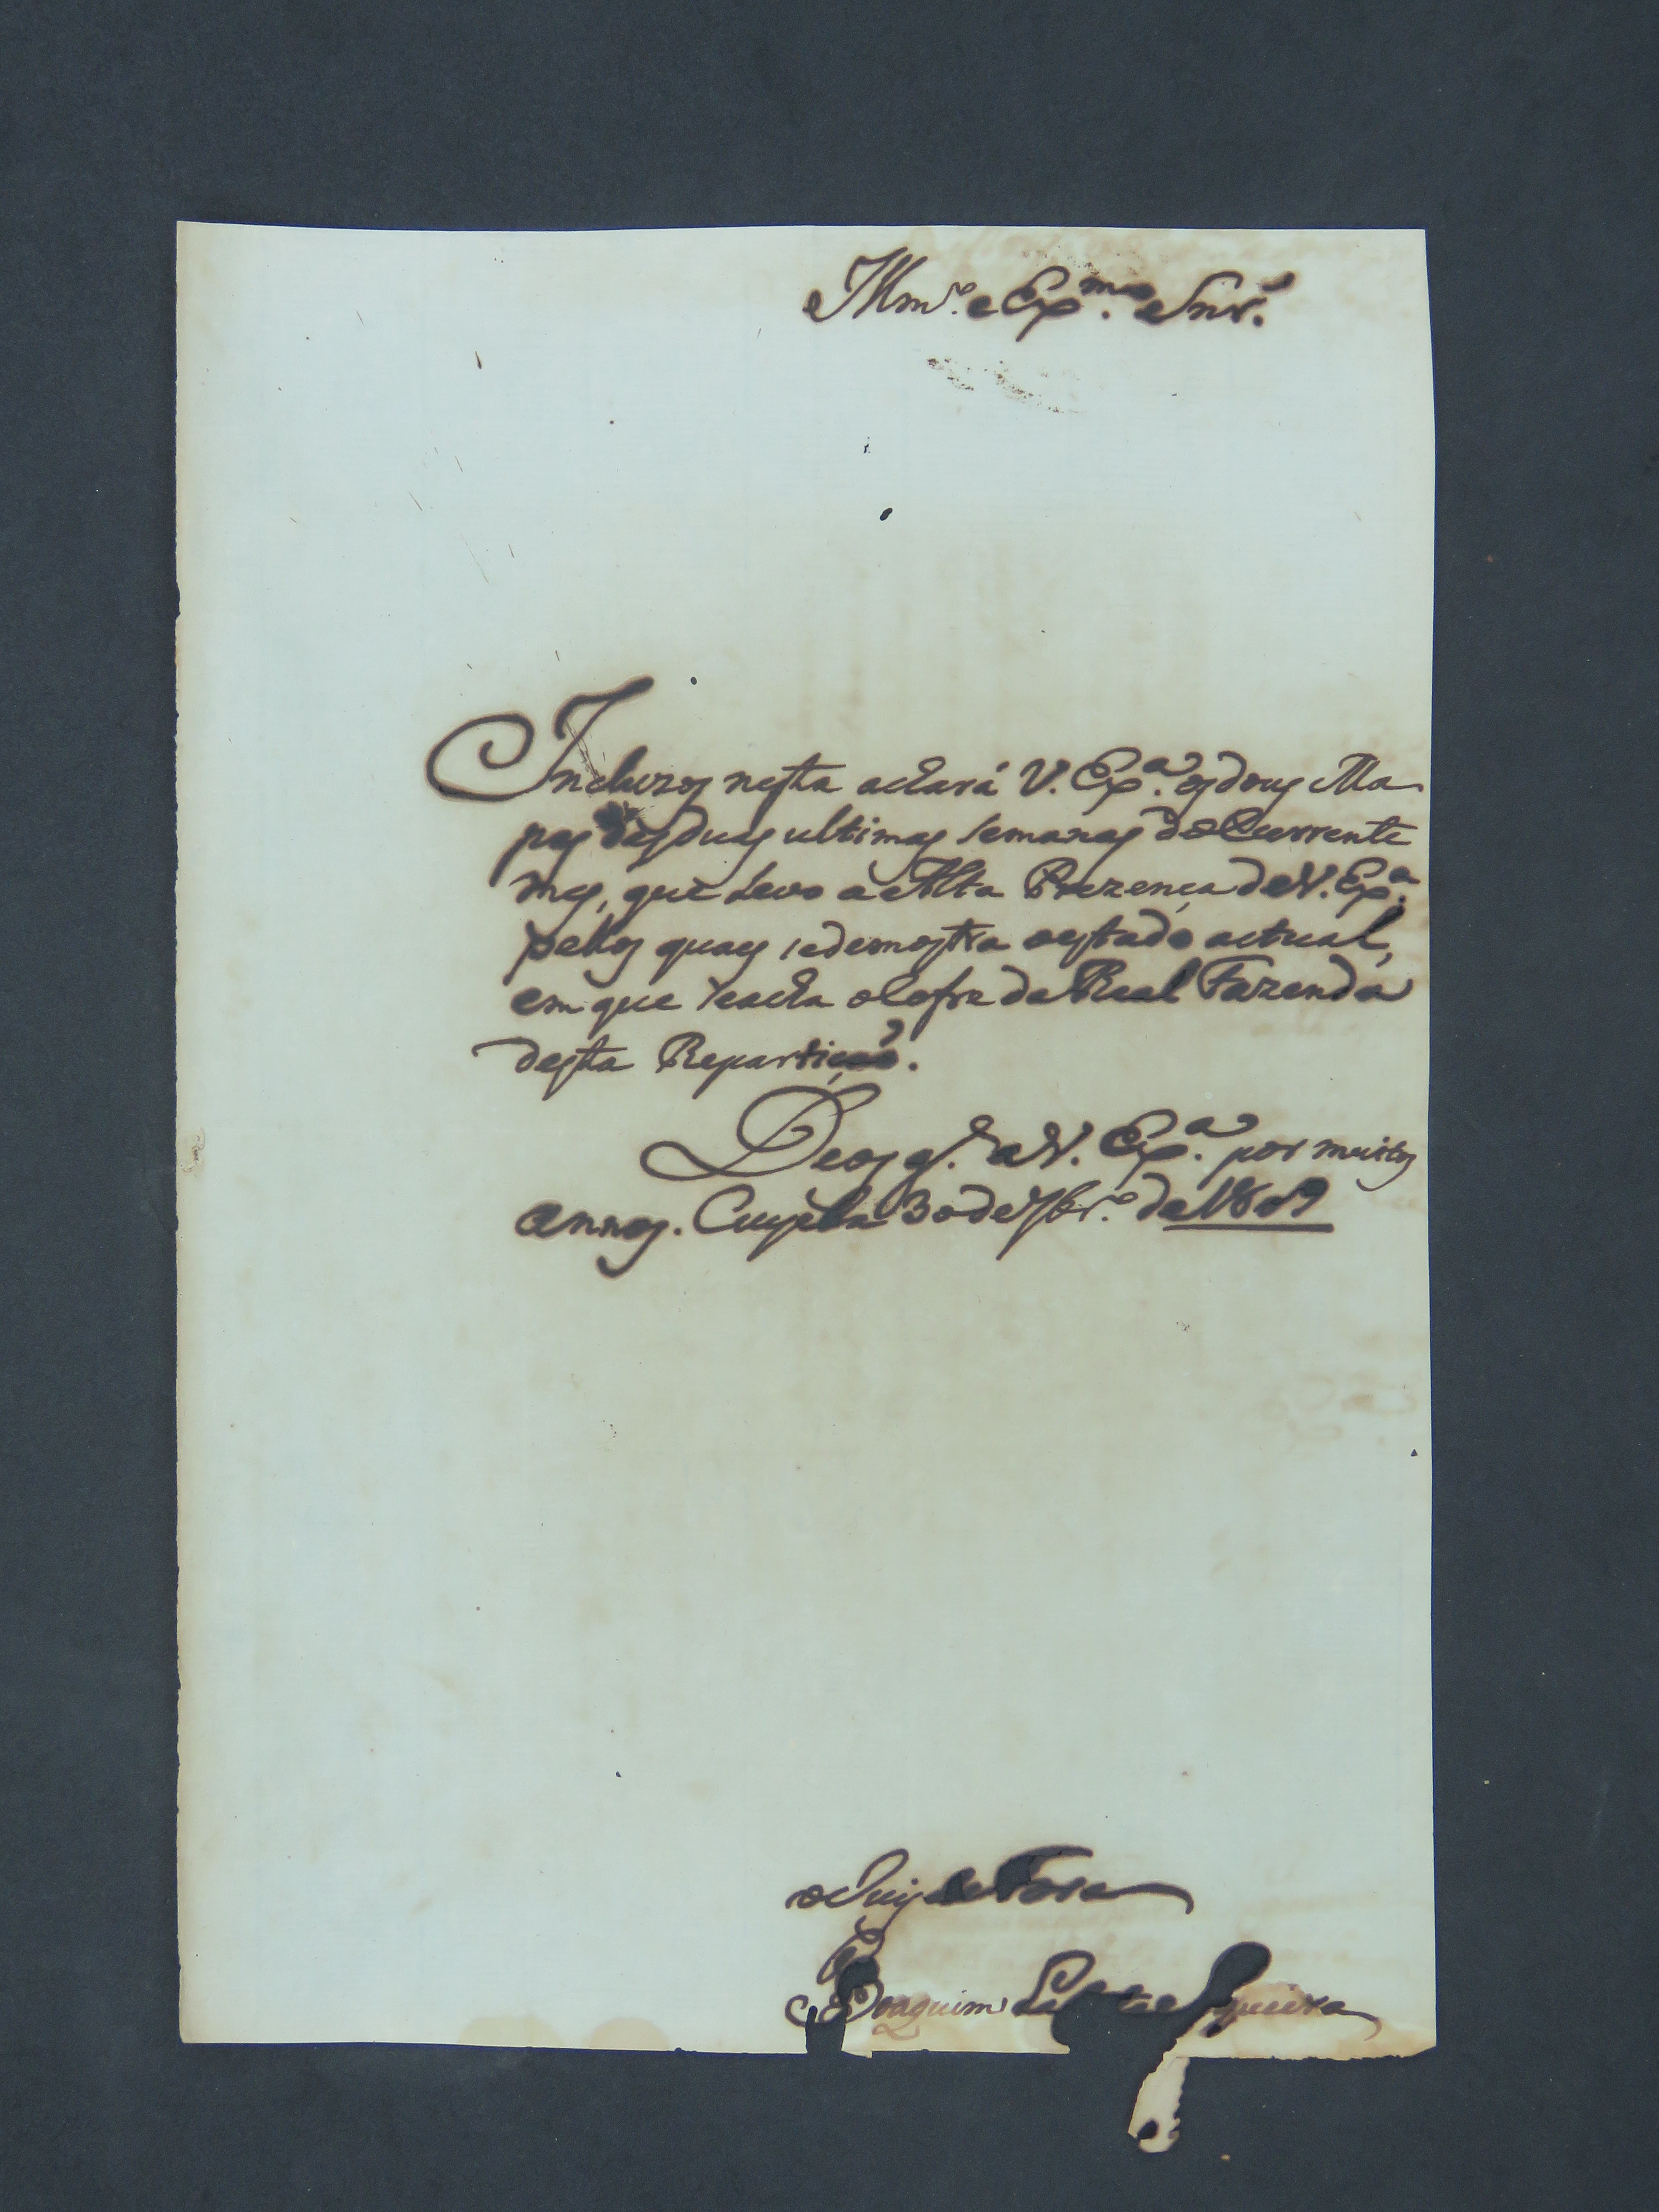 Illm.º e Ex.mo Snr.
Incluzos nesta achará V. Ex.ª os dous Ma-
pas das duas ultimas semanas do Currente
mes, que Levo a Alta Prezença de V. Ex.ª
pellos quaes se demostra o estado actual,
em que se acha o Cofre da Real Fazenda
desta Repartição.
Deos g.e a V. Ex.ª por muitos
annos. Cuyaba 30 de 7br.º de 1809
o Juiz de Fora
Joaquim